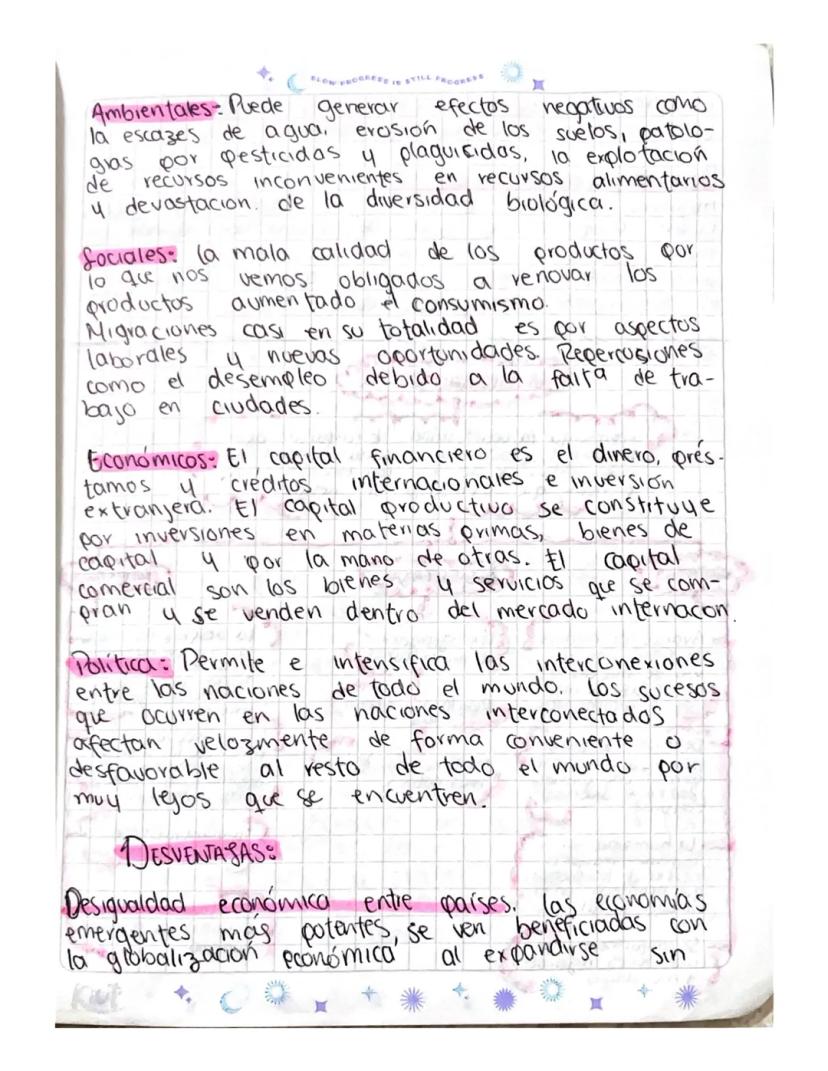 SLOW PROGRESS IS STILL PROGRESS
Ambientales: Puede generar efectos negativos como
la escazes de agua, erosión de los suelos, patolo-
gias por pesticidas y plaguicidas, la explotación
de recursos inconvenientes en recursos alimentarios
y devastacion de la diversidad biológica.
Sociales: la mala calidad de los productos por
lo que nos vemos obligados a renovar los
productos aumentado el consumismo.
Migraciones casi en su totalidad es por aspectos
laborales y nuevas oportunidades. Repercusiones
como el desempleo debido a la falta de tra-
bajo en ciudades.
Económicos: El capital financiero es el dinero, prés-
tamos y créditos internacionales e inversión
extranjera. El capital productivo se constituye
por inversiones en materias primas, bienes de
capital y por la mano de otras. El capital
comercial son los bienes y servicios que se com-
pran y se venden dentro del mercado internacon.
Política: Permite e intensifica las interconexiones
entre las naciones de todo el mundo. Los sucesos
que ocurren en las naciones interconectadas
afectan velozmente de forma conveniente o
desfavorable al resto de todo el mundo por
muy lejos que se encuentren.
DESVENTAJAS:
Desigualdad económica entre países. las economías
emergentes más potentes, se ven beneficiadas con
la globalización económica al expandirse sin
Kiut